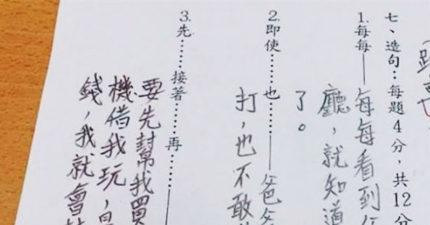 七、造句：每題4分，共12分
1.每每——每每看到
廳，就知道
了。
2.即使……也……——爸爸
打，也不敢
3.先……接著……再……
要先幫我買
機借我玩，
錢，我就會